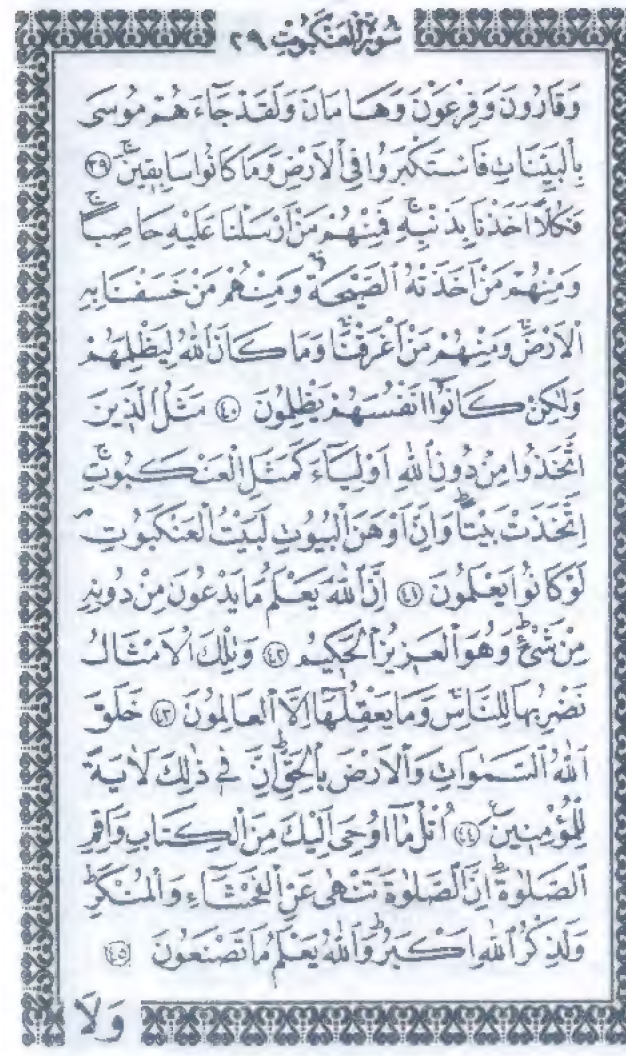 سُورَةُ الْعَنْكَبُوتِ ٢٩
وَقَارُونَ وَفِرْعَوْنَ وَهَامَانَ وَلَقَدْ جَٓاءَهُمْ مُوسٰى
بِالْبَيِّنَاتِ فَاسْتَكْبَرُوا فِي الْاَرْضِ وَمَا كَانُوا سَابِق۪ينَۚ ﴿٣٩﴾
فَكُلًّا اَخَذْنَا بِذَنْبِه۪ۚ فَمِنْهُمْ مَنْ اَرْسَلْنَا عَلَيْهِ حَاصِبًاۚ
وَمِنْهُمْ مَنْ اَخَذَتْهُ الصَّيْحَةُۚ وَمِنْهُمْ مَنْ خَسَفْنَا بِهِ
الْاَرْضَۚ وَمِنْهُمْ مَنْ اَغْرَقْنَاۚ وَمَا كَانَ اللّٰهُ لِيَظْلِمَهُمْ
وَلٰكِنْ كَانُٓوا اَنْفُسَهُمْ يَظْلِمُونَ ﴿٤٠﴾ مَثَلُ الَّذ۪ينَ
اتَّخَذُوا مِنْ دُونِ اللّٰهِ اَوْلِيَٓاءَ كَمَثَلِ الْعَنْكَبُوتِۚ
اِتَّخَذَتْ بَيْتًاۜ وَاِنَّ اَوْهَنَ الْبُيُوتِ لَبَيْتُ الْعَنْكَبُوتِۢ
لَوْ كَانُوا يَعْلَمُونَ ﴿٤١﴾ اِنَّ اللّٰهَ يَعْلَمُ مَا يَدْعُونَ مِنْ دُونِه۪
مِنْ شَيْءٍۜ وَهُوَ الْعَز۪يزُ الْحَك۪يمُ ﴿٤٢﴾ وَتِلْكَ الْاَمْثَالُ
نَضْرِبُهَا لِلنَّاسِۚ وَمَا يَعْقِلُهَٓا اِلَّا الْعَالِمُونَ ﴿٤٣﴾ خَلَقَ
اللّٰهُ السَّمٰوَاتِ وَالْاَرْضَ بِالْحَقِّۜ اِنَّ ف۪ي ذٰلِكَ لَاٰيَةً
لِلْمُؤْمِن۪ينَ۟ ﴿٤٤﴾ اُتْلُ مَٓا اُو۫حِيَ اِلَيْكَ مِنَ الْكِتَابِ وَاَقِمِ
الصَّلٰوةَۜ اِنَّ الصَّلٰوةَ تَنْهٰى عَنِ الْفَحْشَٓاءِ وَالْمُنْكَرِۜ
وَلَذِكْرُ اللّٰهِ اَكْبَرُۜ وَاللّٰهُ يَعْلَمُ مَا تَصْنَعُونَ ﴿٤٥﴾
وَلَا